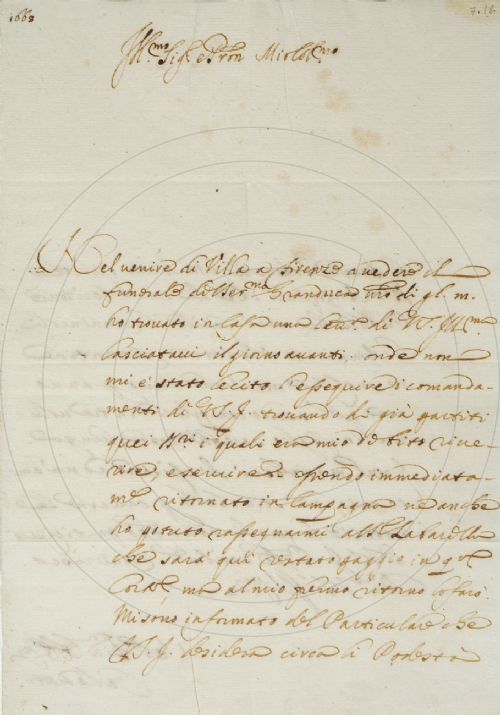 7. 16
Ill.mo Sig.r e Pron Mio
Nel venire di Villa a firenze a vedere il
funerale del Ser.mo Granduca di gl. m.
ho trovato in Casa una di V.S. Ill.ma
lasciatavi il giorno avanti, onde non
mi è stato lecito l'esseguire i comanda-
menti di V.S.I. trovando di già partiti
quei i quali era mio debito rive-
rire, e servire. essendo immediata-
m.te ritornato in Campagna ne anche
ho potuto rassegnarmi al S.r
che sarà qui restato in q.
ma al mio primo ritorno lo farò.
Mi sono informato del Particulare che
V.S.I. desidera circa li Podestà